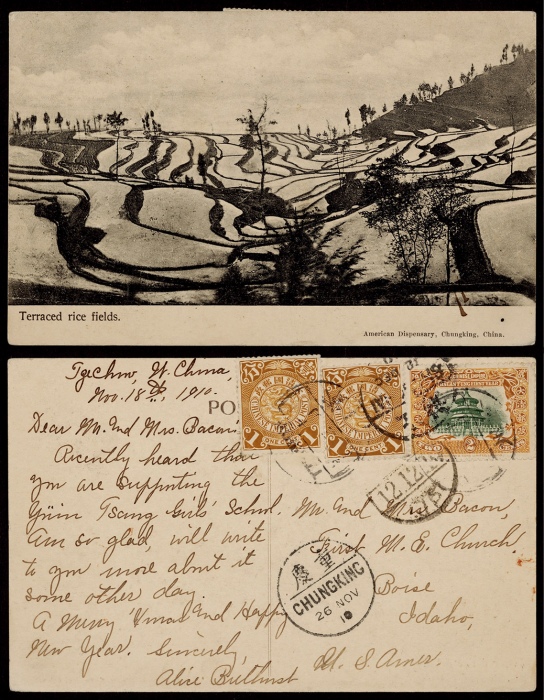 Terraced rice fields.
American Dispensary, Chungking, China.
Tzechow, W. China
Nov. 18th, 1910.
PO
Dear Mr. and Mrs. Bacon,
Recently heard that
you are supporting the
Tsang Girls' School,
am so glad, will write
to you more about it
some other day.
A Merry Xmas and Happy
New Year. Sincerely,
Alice
1 1
ONE CENT ONE CENT
2 2
Mr. and Mrs. Bacon,
First M. E. Church,
Boise
Idaho,
U. S. Amer.
12.12
重慶
CHUNGKING
26 NOV
10